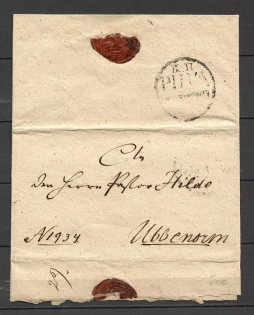 RIGA
An
den Herrn Pastor Hilde
N 1934.
Ubbenorm